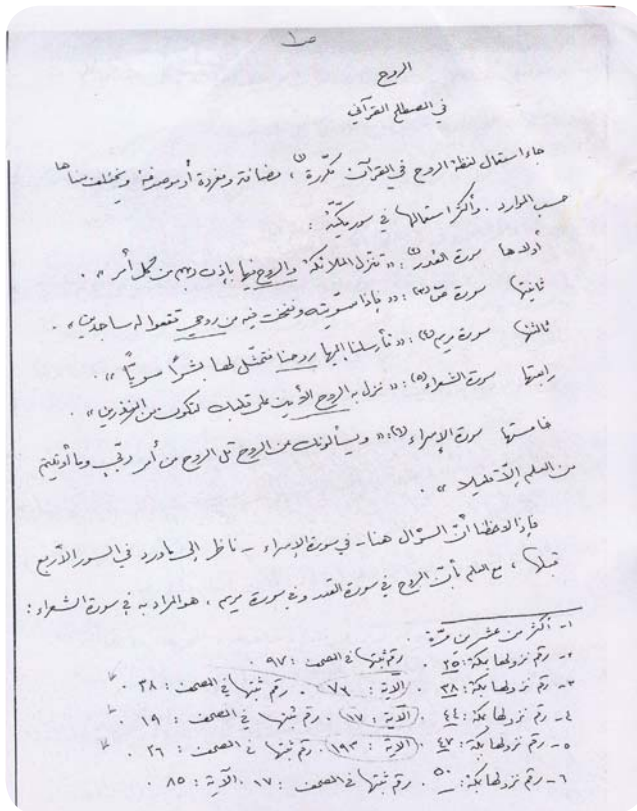 ص١
الروح
في المصطلح القرآني
جاء استعمال لفظة الروح في القرآن مكررة (١)، مضافة ومفردة أو موصوفة ويختلف معناها
حسب الموارد. وأكثر استعمالها في سور مكيّة:
أولاها سورة القدر (٢): «تنزل الملائكة والروح فيها بإذن ربهم من كل أمر».
ثانيتها سورة صۤ (٣): «فإذا سويته ونفخت فيه من روحي فقعوا له ساجدين».
ثالثتها سورة مريم (٤): «فأرسلنا إليها روحنا فتمثّل لها بشرًا سويًّا».
رابعتها سورة الشعراء (٥): «نزل به الروح الأمين على قلبك لتكون من المنذرين».
خامستها سورة الإسراء (٦): «ويسألونك عن الروح قل الروح من أمر ربّي وما أوتيتم
من العلم إلاّ قليلا».
فإذا لاحظنا أنّ السؤال هنا – في سورة الإسراء – ناظر إلى ما ورد في السور الأربع
قبلها، مع العلم بأنّ الروح في سورة القدر وفي سورة مريم، هو المراد به في سورة الشعراء:
١- أكثر من عشرين مرّة.
٢- رقم نزولها بمكة: ٢٥. رقم ثبتها في المصحف: ٩٧.
٣- رقم نزولها بمكة: ٣٨. (الآية: ٧٢). رقم ثبتها في المصحف: ٣٨.
٤- رقم نزولها بمكة: ٤٤. (الآية: ١٧). رقم ثبتها في المصحف: ١٩.
٥- رقم نزولها بمكة: ٤٧. (الآية: ١٩٣). رقم ثبتها في المصحف: ٢٦.
٦- رقم نزولها بمكة: ٥٠. رقم ثبتها في المصحف: ١٧. الآية: ٨٥.